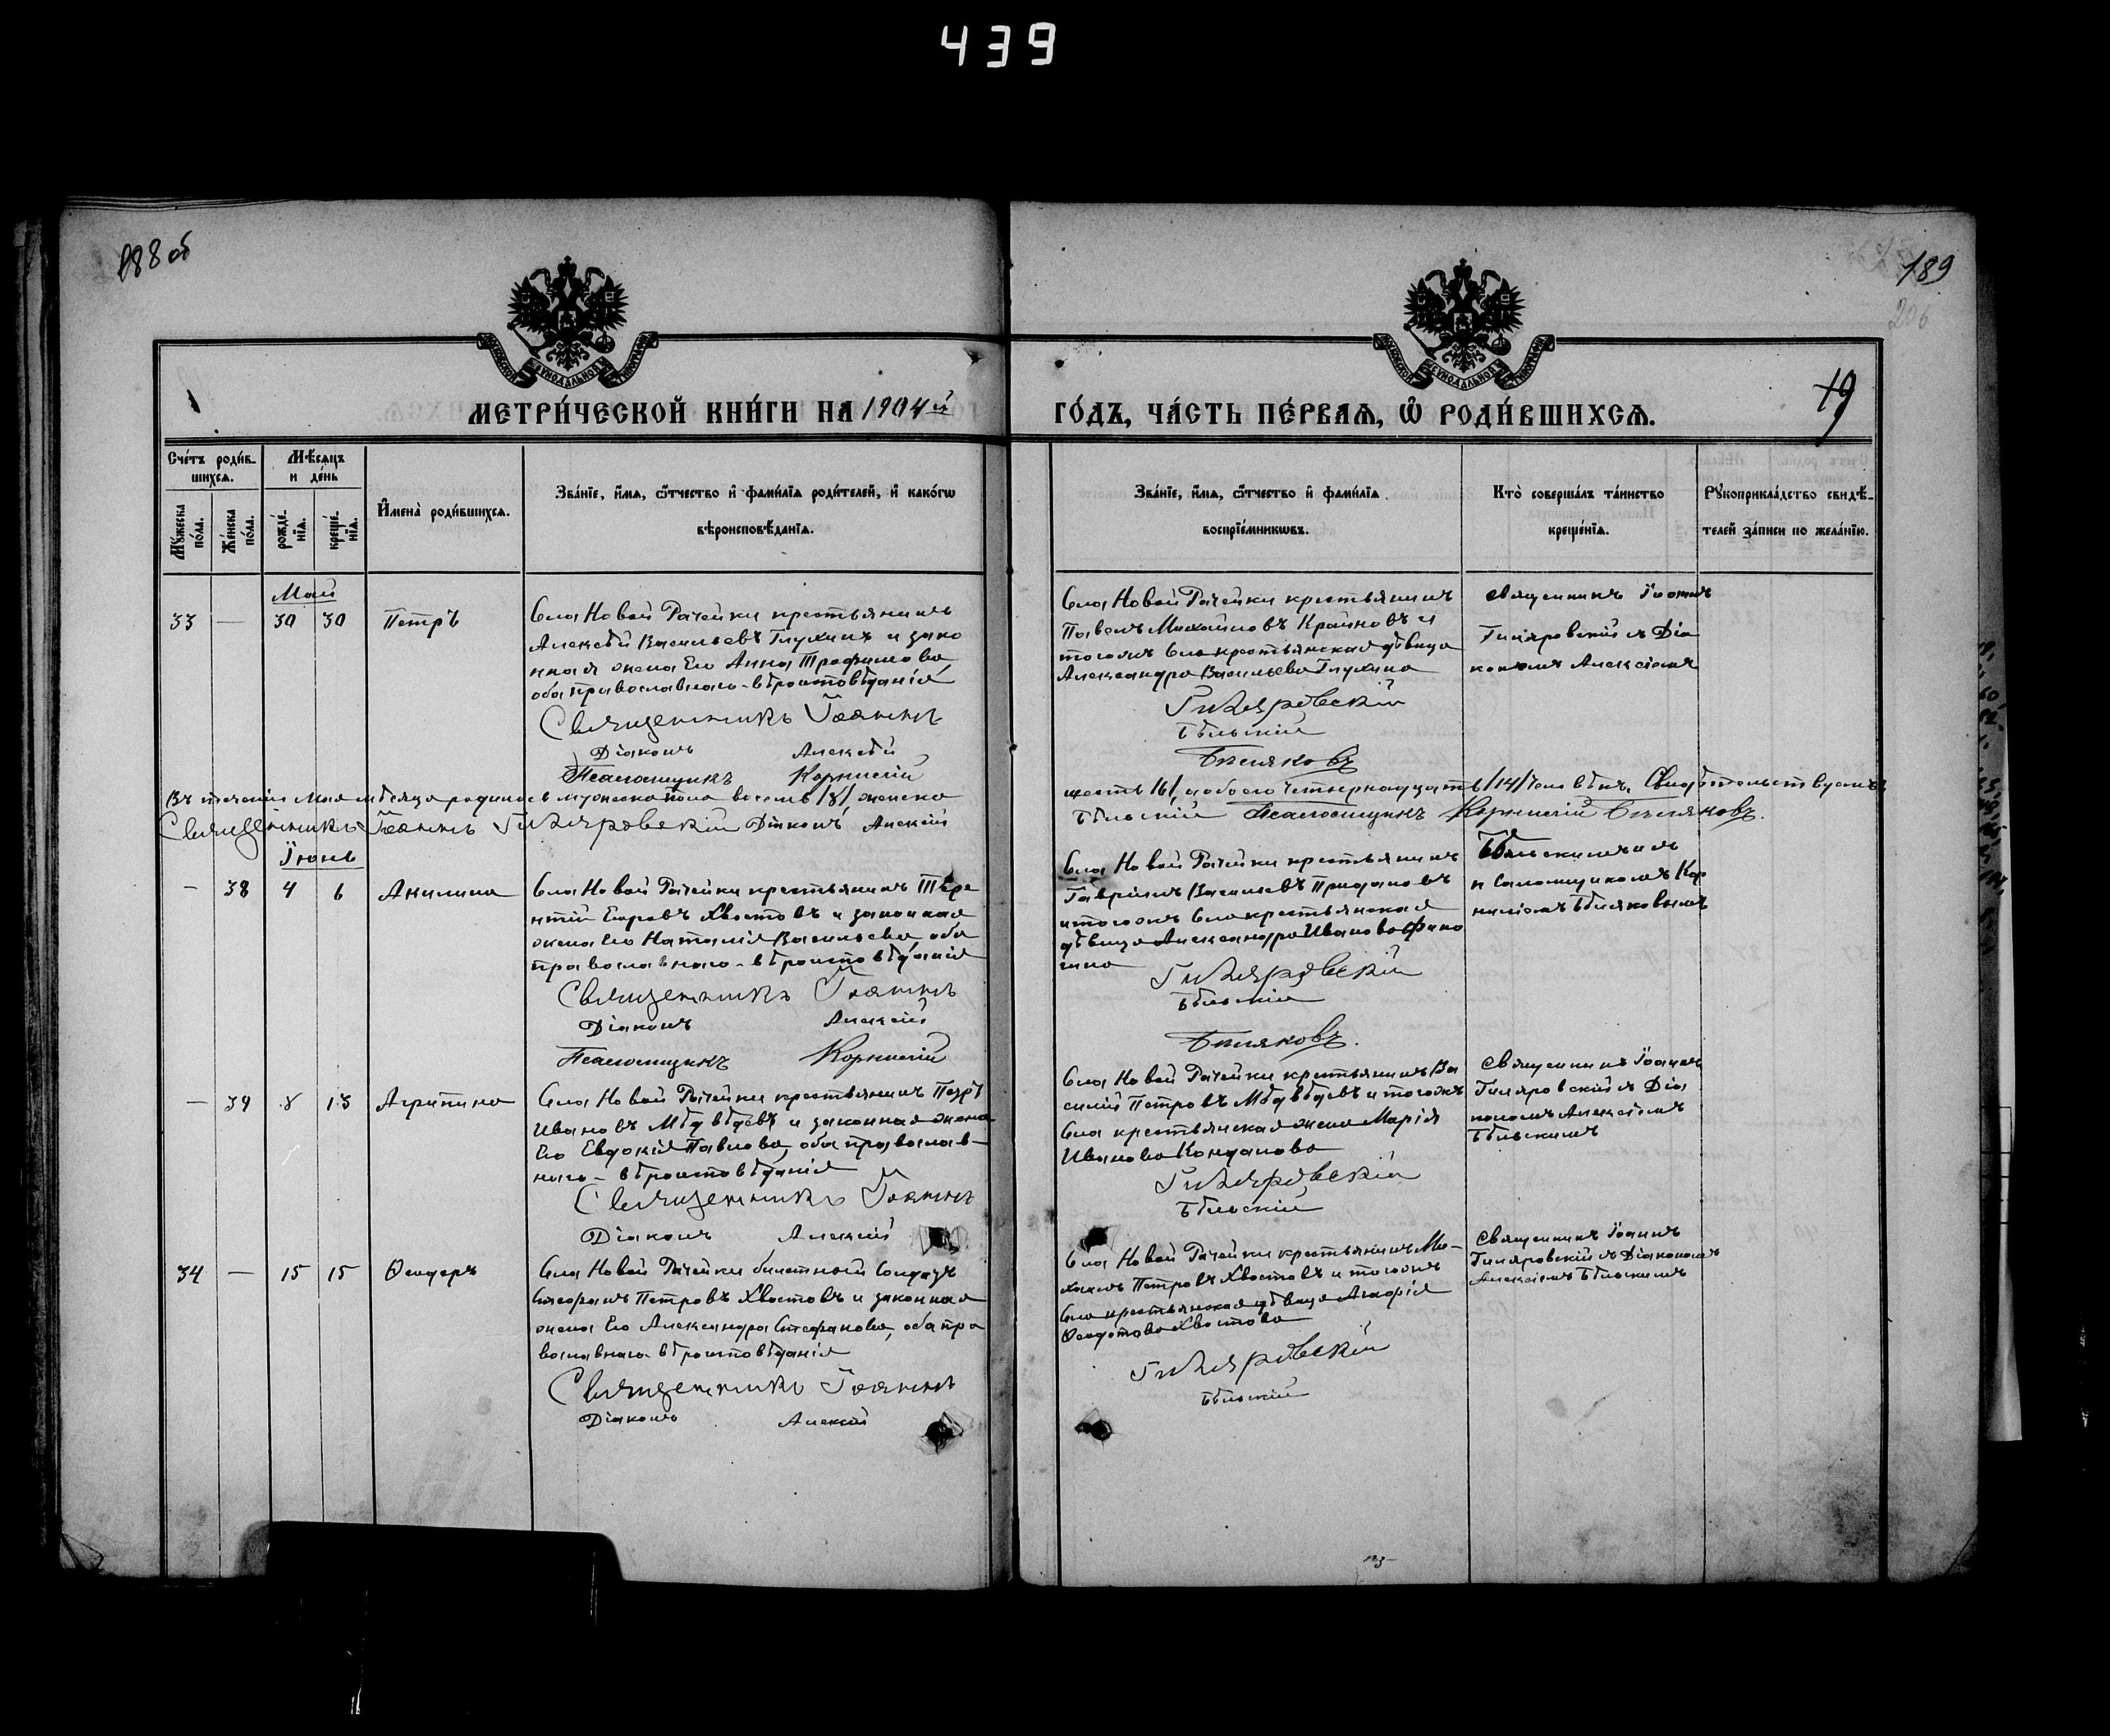 439
188 об
189
206
МЕТРИ́ЧЕСКОЙ КНИ́ГИ НА 1904 й
ГО́ДЪ, ЧА́СТЬ ПЕ́РВАЯ, Ѿ РОДИ́ВШИХСЯ.
19
Сче́тъ роди́в-
шихся.
Мѣ́сяцъ
и де́нь
Мꙋ́жеска по́ла.
Же́нска по́ла.
рожде́-
нїя.
креще́-
нїя.
И҆мена̀ роди́вшихся.
Зва́нїе, и҆́мя, ѻ҆́тчество и҆ фами́лїя роди́телей, и҆ како́гѡ
вѣроисповѣ́данїя.
Зва́нїе, и҆́мя, ѻ҆́тчество и҆ фами́лїя
воспрїе́мникѡвъ.
Кто̀ соверша́лъ та́инство
креще́нїя.
Рꙋкоприкла́дство свидѣ́-
телей за́писи по жела́нїю.
Май
33 — 30 30 Петръ
Села Новой Рачейки крестьянинъ
Алексѣй Васильевъ Глухинъ и зако
нная жена Его Анна Трофимова
оба православнаго-вѣроисповѣданія
Священникъ Іоаннъ
Діаконъ Алексѣй
Псаломщикъ Корнилій
Села Новой Рачейки крестьянинъ
Павелъ Михайловъ Крайновъ и
тогожъ Села крестьянская дѣвица
Александра Васильева Глухина
Гиляровскій
Бѣльскій
Бѣляковъ
Священникъ Іоаннъ
Гиляровскій съ Діа
кономъ Алексіемъ
Въ теченіи Мая мѣсяца родилось мужеска пола восемь /8/, женска
шесть /6/, а обоего четырнадцать /14/ человѣкъ. Свидѣтельствуемъ:
Священникъ Іоаннъ Гиляровскій Діаконъ Алексій
Бѣльскій Псаломщикъ Корнилій Бѣляковъ.
Іюнь
— 38 4 6 Акилина
Села Новой Рачейки крестьянинъ Тере
нтій Егоровъ Хвостовъ и законная
жена Его Наталія Васильева, оба
православнаго-вѣроисповѣданія
Священникъ Іоаннъ
Діаконъ Алексій
Псаломщикъ Корнилій
Села Новой Рачейки крестьянинъ
Гавріилъ Васильевъ
и тогожъ Села крестьянская
дѣвица Александра Иванова
Гиляровскій
Бѣльскій
Бѣляковъ.
Бѣльскимъ и
псаломщикомъ Кор
ниліемъ Бѣляковымъ
— 39 8 13 Агрипина
Села Новой Рачейки крестьянинъ Петръ
Ивановъ Мѣдвѣдевъ и законная жена
Его Евдокія Павлова, оба православ-
наго-вѣроисповѣданія
Священникъ Іоаннъ
Діаконъ Алексій
Села Новой Рачейки крестьянинъ Ва
силій Петровъ Мѣдвѣдевъ и тогожъ
Села крестьянская жена Марія
Иванова
Гиляровскій
Бѣльскій
Священникъ Іоаннъ
Гиляровскій съ Діа
кономъ Алексіемъ
Бѣльскимъ
34 — 15 15 Ѳеодоръ
Села Новой Рачейки билетный Солдатъ
Стефанъ Петровъ Хвостовъ и законная
жена Его Александра Стефанова, оба пра
вославнаго вѣроисповѣданія
Священникъ Іоаннъ
Діаконъ Алексій
Села Новой Рачейки крестьянинъ Ми-
хаилъ Петровъ Хвостовъ и тогожъ
Села крестьянская дѣвица
Ѳеодотова Хвостова
Гиляровскій
Бѣльскій
Священникъ Іоаннъ
Гиляровскій съ Діакономъ
Алексіемъ Бѣльскимъ